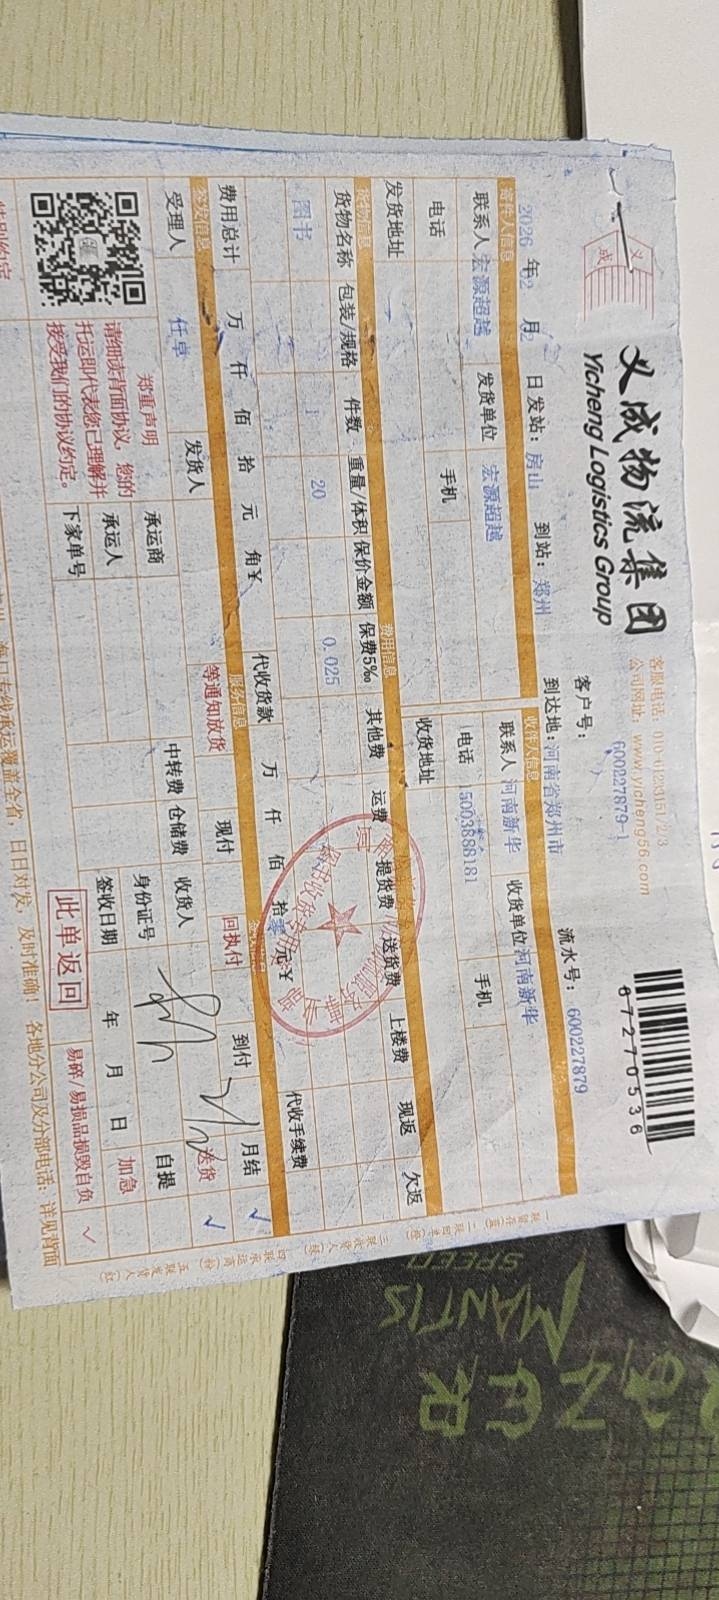 义成
义成物流集团
Yicheng Logistics Group
客服电话：010-61283151/2/3
公司网址：www.yicheng56.com
600227879-1
67270536
客户号：
流水号：600227879
2026 年 2 月 2 日 发站：房山 到站：郑州 到达地：河南省郑州市
寄件人信息
收件人信息
联系人 宏源超越 发货单位 宏源超越
联系人 河南新华 收货单位 河南新华
电话 手机
电话 15003888181 手机
发货地址
收货地址
货物信息
费用信息
货物名称 包装/规格 件数 重量/体积 保价金额 保费5‰ 其他费 运费 提货费 送货费 上楼费 现返 欠返
图书 1 20 0.025
费用总计 万 仟 佰 拾 元 角 ¥
代收货款 万 仟 佰 拾 元 ¥
代收手续费
签发信息
服务信息
受理人 任卓 发货人
等通知放货 现付 回执付 到付 月结 ✓
承运商 中转费 仓储费 收货人 送货 ✓
承运人 身份证号 自提
下家单号 签收日期 年 月 日 加急
郑重声明
请细读背面协议，您的
托运即代表您已理解并
接受我们的协议约定。
此单返回
易碎/易损品损毁自负 ✓
特别约定
专线承运覆盖全省，日日对发，及时准确！ 各地分公司及分部电话：详见背面
MANTIS
SPEED